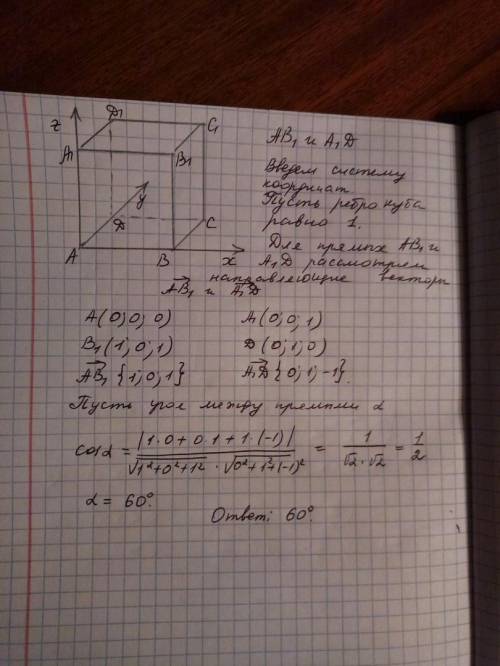 z
D₁
C₁
A₁
B₁
y
D
C
A
B
x
AB₁ и A₁D
Введем систему
координат
Пусть ребро куба
равно 1.
Для прямых AB₁ и
A₁D рассмотрим
направляющие векторы
AB₁ и A₁D
A(0;0;0) A₁(0;0;1)
B₁(1;0;1) D(0;1;0)
AB₁{1;0;1} A₁D{0;1;-1}.
Пусть угол между прямыми α
cosα = |1·0+0·1+1·(-1)| / √1²+0²+1² · √0²+1²+(-1)² = 1 / √2·√2 = 1/2
α = 60°.
Ответ: 60°.